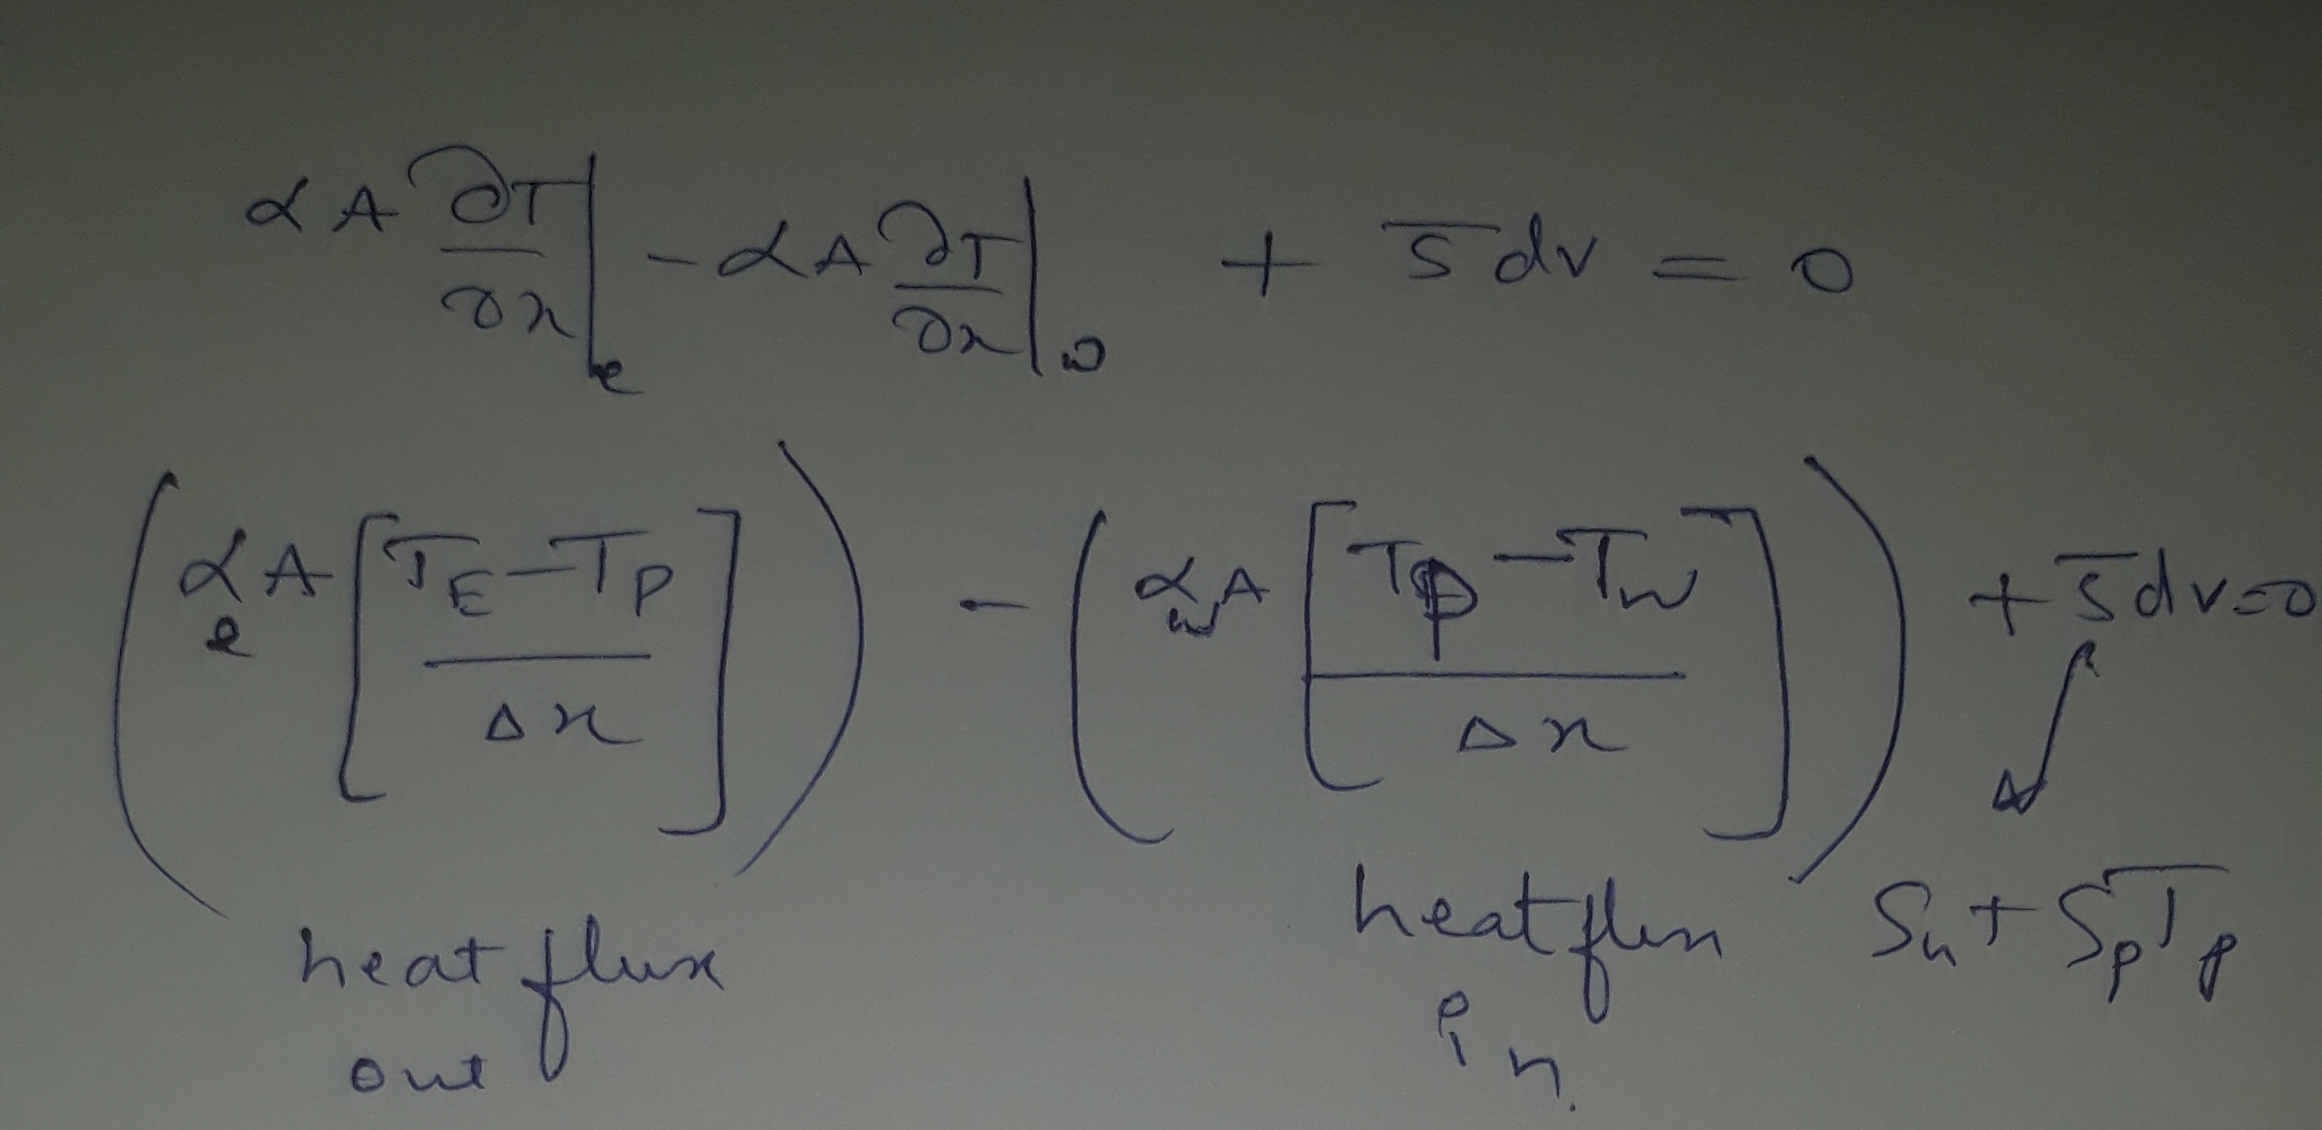 α A ∂T/∂x |e − α A ∂T/∂x |w + S̅ dv = 0
( αe A [ (TE − TP)/Δx ] ) − ( αw A [ (TP − Tw)/Δx ] ) + S̅ dv = 0
heat flux out
heat flux in.
Su + SpTp